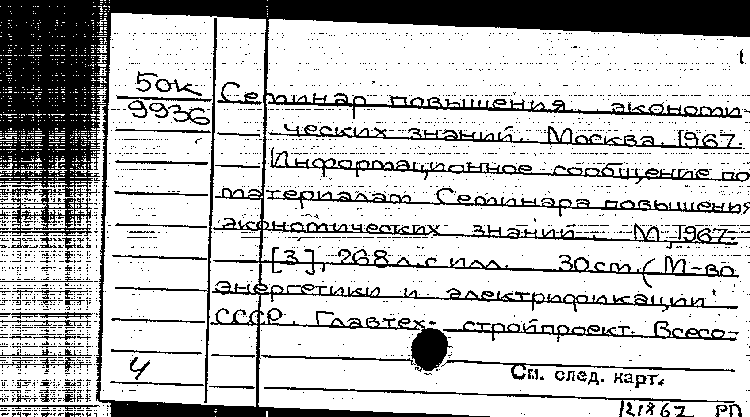 1
50к
9936
Семинар повышения экономи-
ческих знаний. Москва. 1967.
Информационное сообщение по
материалам Семинара повышения
экономических знаний. М., 1967.
[3], 268 л. с илл. 30 см. (М-во
энергетики и электрификации
СССР. Главтех- стройпроект. Всесо-
4
См. след. карт.
121867 РП